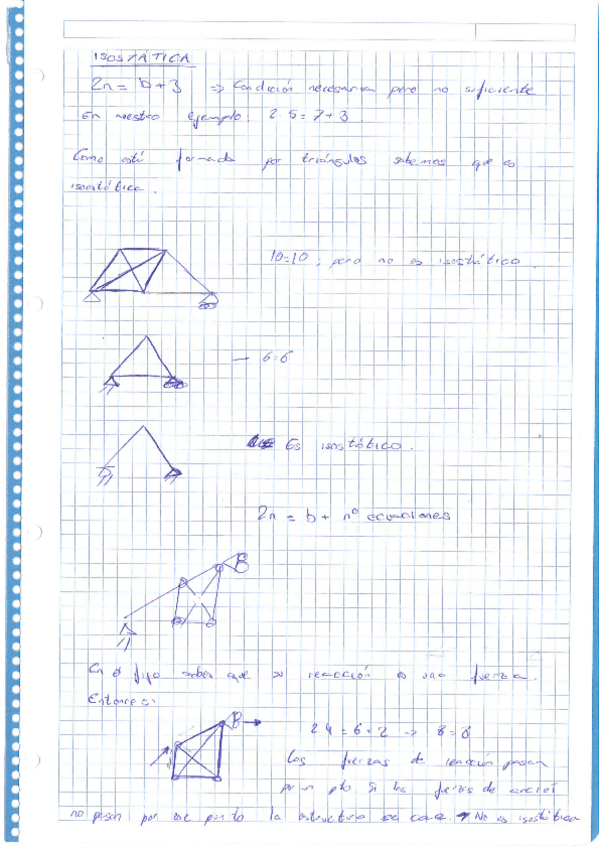 ISOSTÁTICA
2n = b + 3 => Condición necesaria pero no suficiente
En nuestro ejemplo: 2·5 = 7+3
Como está formada por triángulos sabemos que es
isostática.
10=10; pero no es isostático.
— 6=6
Es isostático.
2n = b + nº ecuaciones
En el fijo sabes que su reacción es una fuerza.
Entonces:
2·4 = 6 = 2 -> 8 = 8
Las fuerzas de reacción pasan
por un pto. Si las fuerzas de
no pasan por ese punto la estructura se cae. → No es isostática